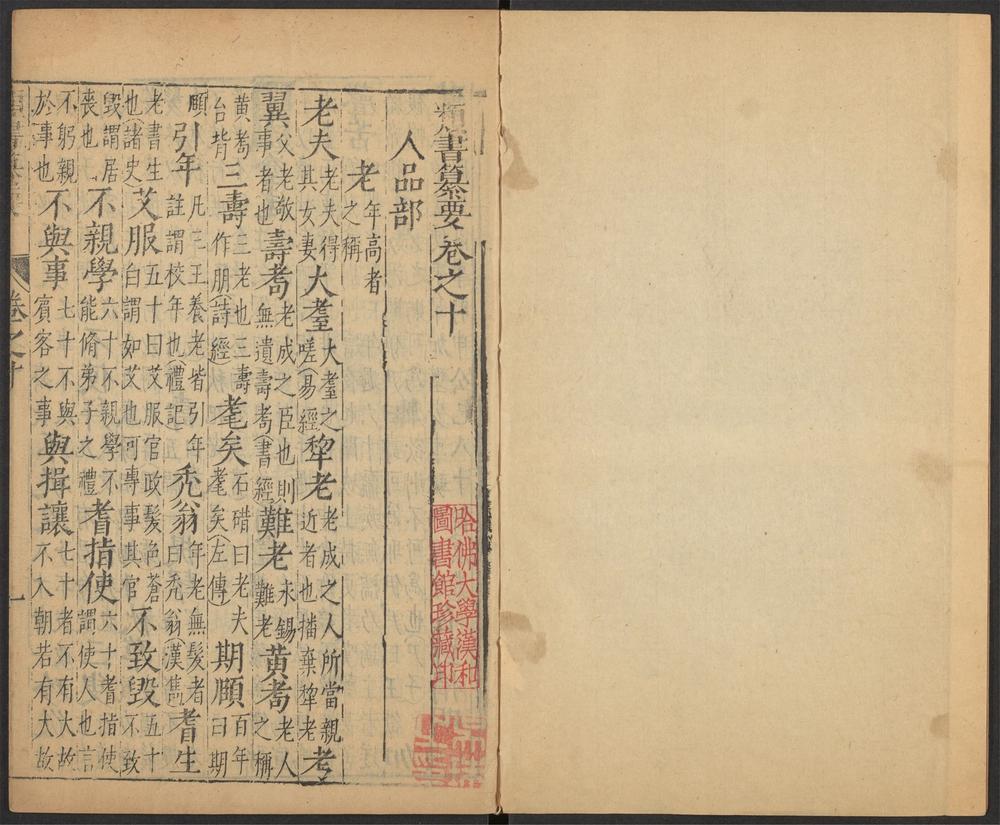 類書纂要卷之十
人品部
老 年高者之稱
老夫 老夫得其女妻 大耋 大耋之嗟(易經) 犂老 老成之人所當親近者也播棄犂老 考
翼 父老敬事者也 壽耇 老成之臣也則無遺壽耇(書經) 難老 永錫難老 黃耇 老人之稱
黃耇台背 三壽 三老也三壽作朋(詩經) 耄矣 石碏曰老夫耄矣(左傳) 期頤 百年曰期
頤 引年 凡三王養老皆引年註謂校年也(禮記) 禿翁 年老無髮者曰禿翁(漢雋) 耆生
老書生也(諸史 艾服 五十曰艾服官政髮色蒼白謂如艾也可專事其官 不致毀 五十不致
毀謂居喪也 不親學 六十不親學不能脩弟子之禮 耆指使 六十耆指使謂使人也言
不躬親於事也 不與事 七十不與賓客之事 與揖讓 七十者不有大故不入朝若有大故
卷之十
一
哈佛大學漢和
圖書館珍藏印